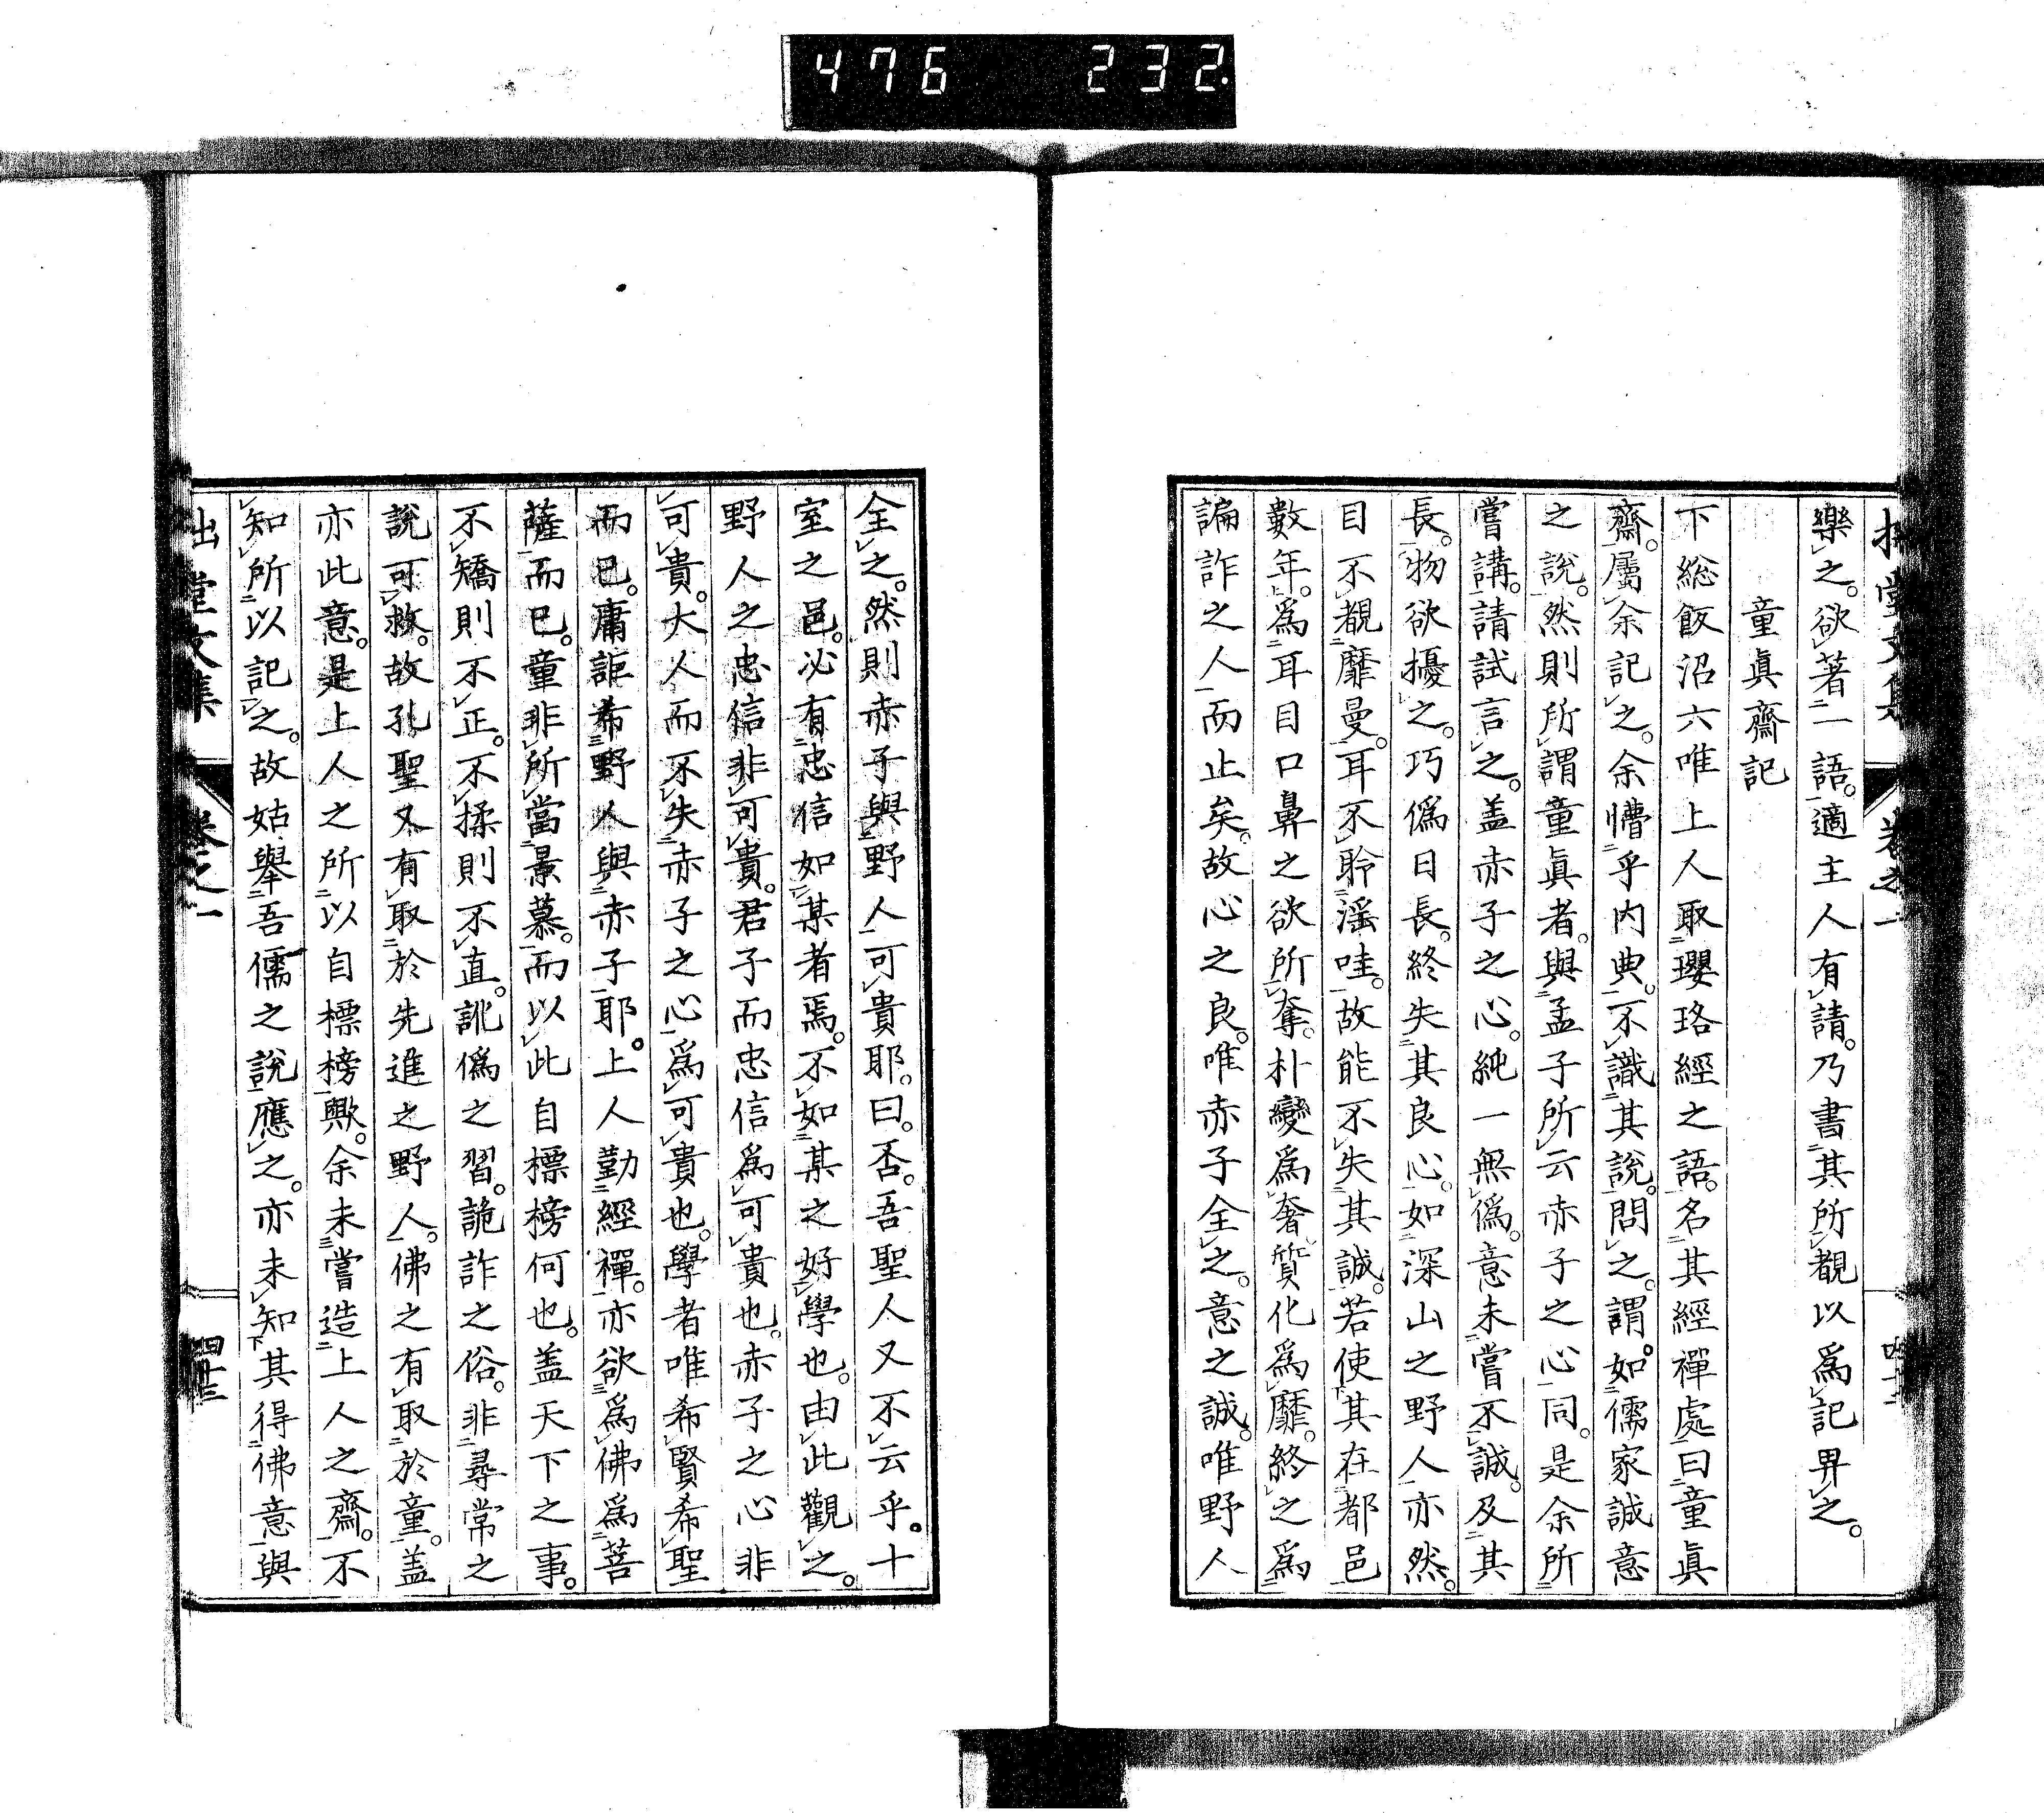 476 232.
樂之。欲著一語。適主人有請。乃書其所覩以爲記畀之。
童眞齋記
下総飯沼六唯上人取瓔珞經之語。名其經禪處曰童眞
齋。屬余記之。余懵乎內典。不識其說。問之。謂如儒家誠意
之說。然則所謂童眞者。與孟子所云赤子之心同。是余所
嘗講。請試言之。盖赤子之心。純一無僞。意未嘗不誠。及其
長。物欲擾之。巧僞日長。終失其良心。如深山之野人亦然。
目不覩靡曼。耳不聆淫哇。故能不失其誠。若使其在都邑
數年。爲耳目口鼻之欲所奪。朴變爲奢。質化爲靡。終之爲
諞詐之人而止矣。故心之良。唯赤子全之。意之誠。唯野人
全之。然則赤子與野人可貴耶。曰。否。吾聖人又不云乎。十
室之邑。必有忠信如某者焉。不如某之好學也。由此觀之。
野人之忠信非可貴。君子而忠信爲可貴也。赤子之心非
可貴。大人而不失赤子之心爲可貴也。學者唯希賢希聖
而已。庸詎希野人與赤子耶。上人勤經禪。亦欲爲佛爲菩
薩而已。童非所當景慕。而以此自標榜何也。盖天下之事。
不矯則不正。不揉則不直。訛僞之習。詭詐之俗。非尋常之
說可救。故孔聖又有取於先進之野人。佛之有取於童。盖
亦此意。是上人之所以自標榜歟。余未嘗造上人之齋。不
知所以記之。故姑舉吾儒之說應之。亦未知其得佛意與
拙堂文集 卷之一 四十三